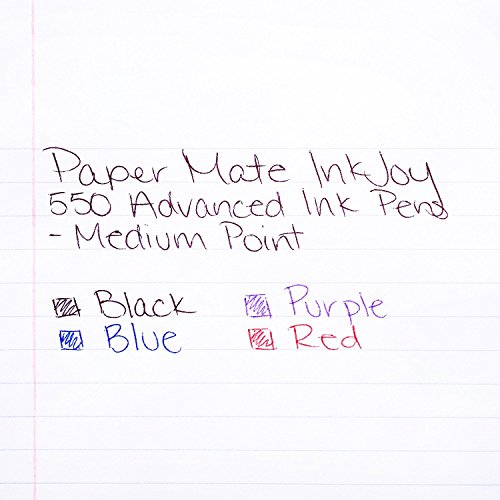 Paper Mate InkJoy
550 Advanced Ink Pens
- Medium Point
Black Purple
Blue Red